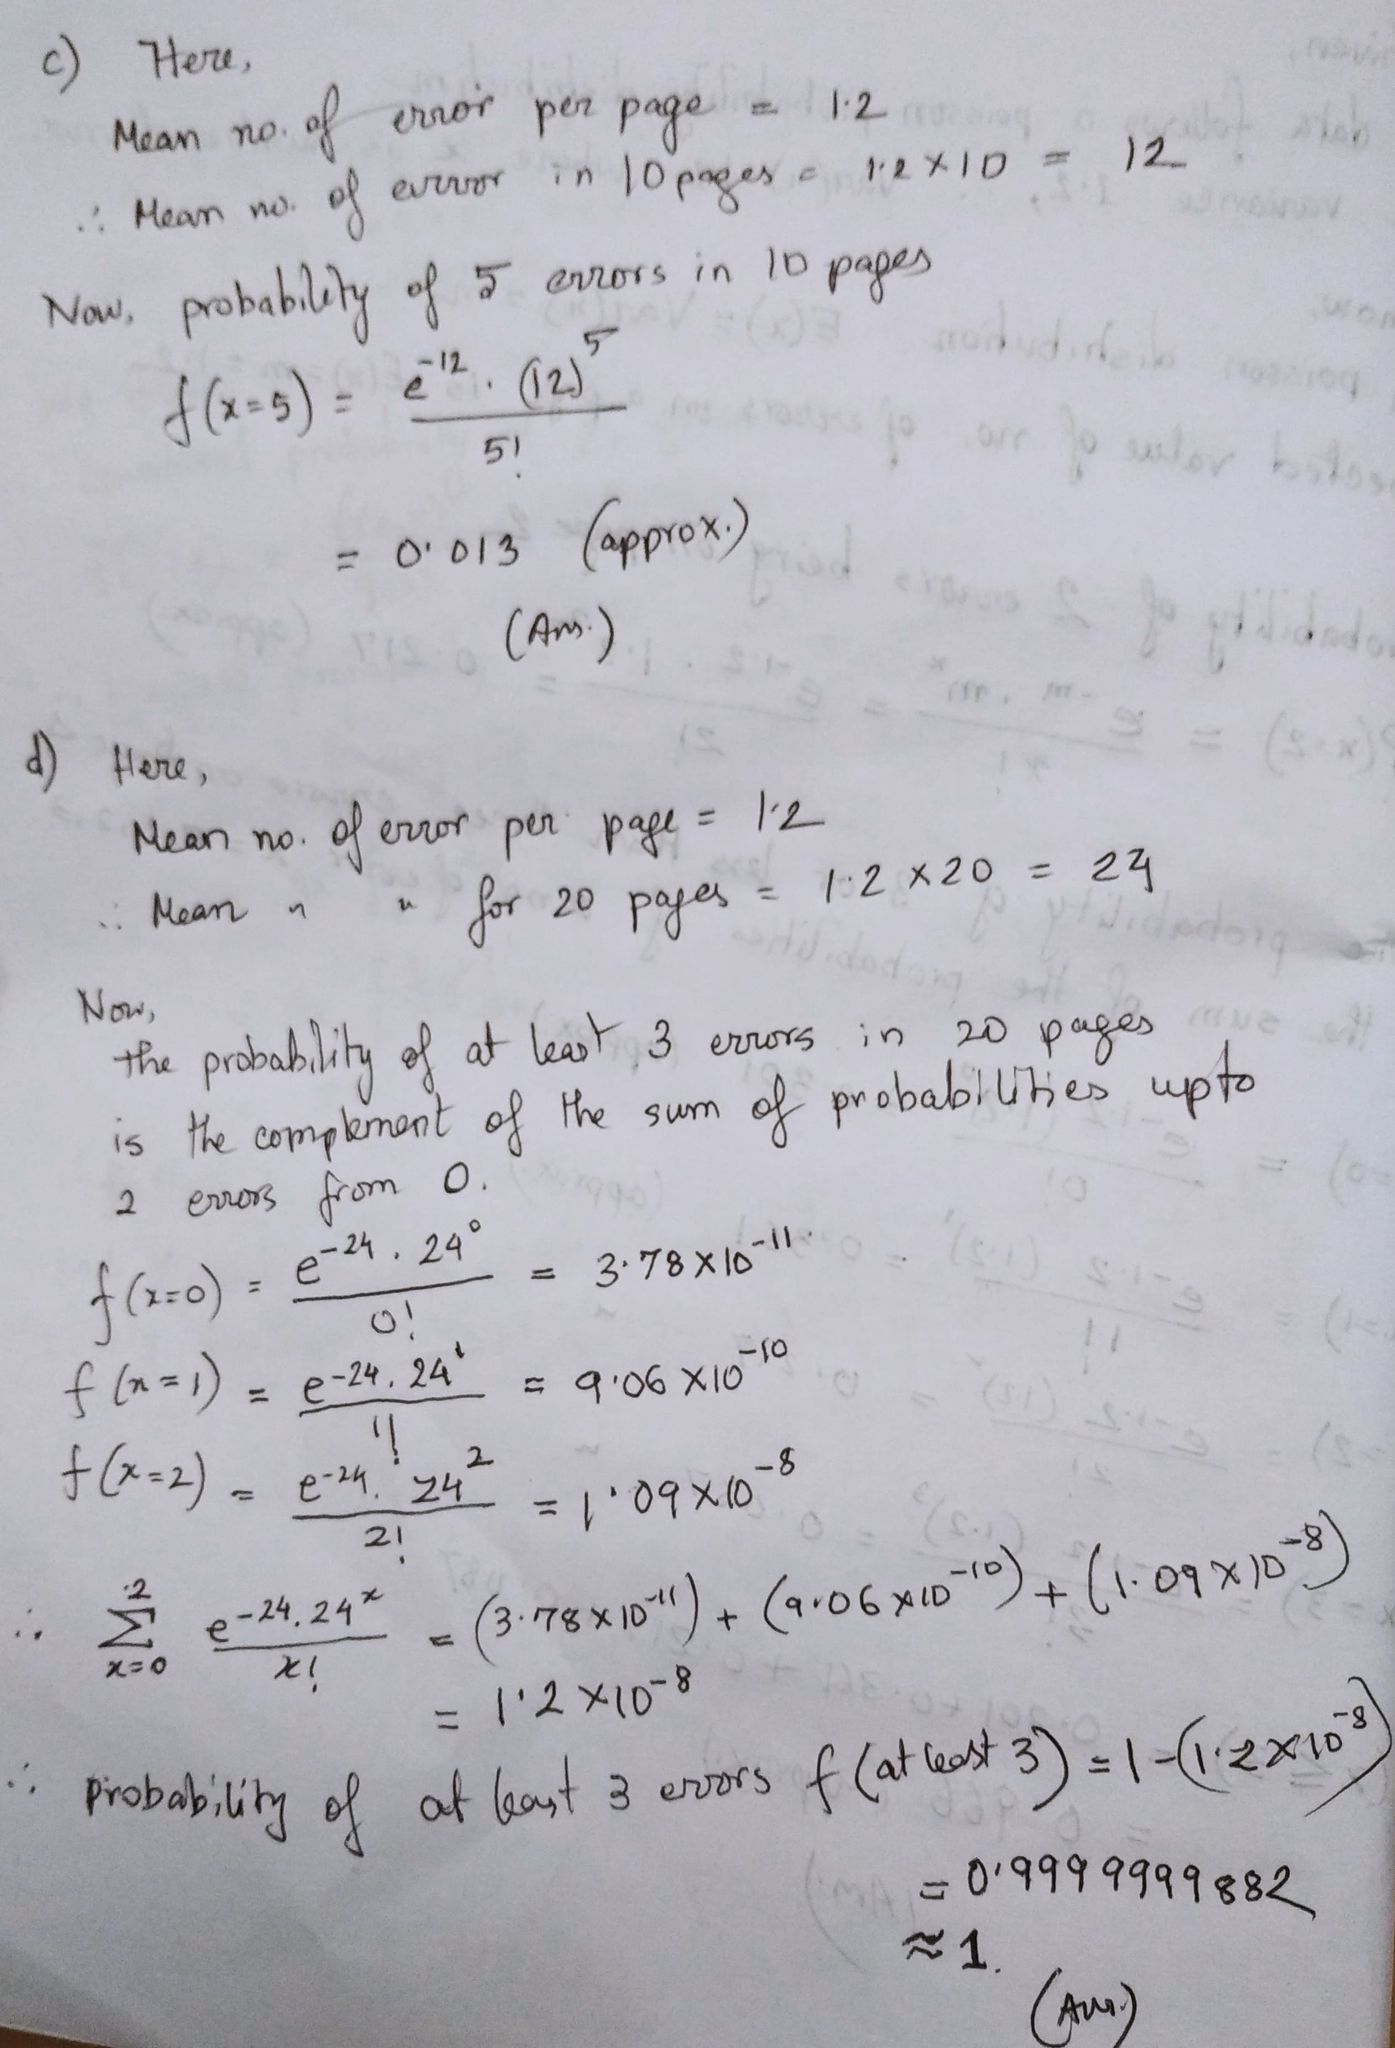 c) Here,
Mean no. of error per page = 1.2
∴ Mean no. of error in 10 pages = 1.2 × 10 = 12
Now, probability of 5 errors in 10 pages
f(x=5) = e^-12 . (12)^5 / 5!
= 0.013 (approx.)
(Ans.)
d) Here,
Mean no. of error per page = 1.2
∴ Mean " " for 20 pages = 1.2 × 20 = 24
Now,
the probability of at least 3 errors in 20 pages
is the complement of the sum of probabilities upto
2 errors from 0.
f(x=0) = e^-24 . 24^0 / 0! = 3.78 × 10^-11
f(x=1) = e^-24 . 24^1 / 1! = 9.06 × 10^-10
f(x=2) = e^-24 . 24^2 / 2! = 1.09 × 10^-8
∴ Σ_{x=0}^{2} e^-24 . 24^x / x! = (3.78 × 10^-11) + (9.06 × 10^-10) + (1.09 × 10^-8)
= 1.2 × 10^-8
∴ Probability of at least 3 errors f (at least 3) = 1 - (1.2 × 10^-8)
= 0.9999999882
≈ 1.
(Ans.)